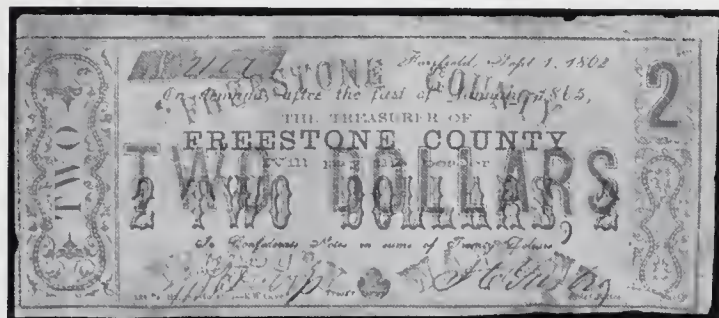 TWO
2
Fairfield, Sept 1, 1862
FREESTONE COUNTY
On demand, after the first of January, 1865,
THE TREASURER OF
FREESTONE COUNTY
Will pay the bearer
TWO DOLLARS
2 TWO DOLLARS, 2
In Confederate Notes in sums of Twenty Dollars